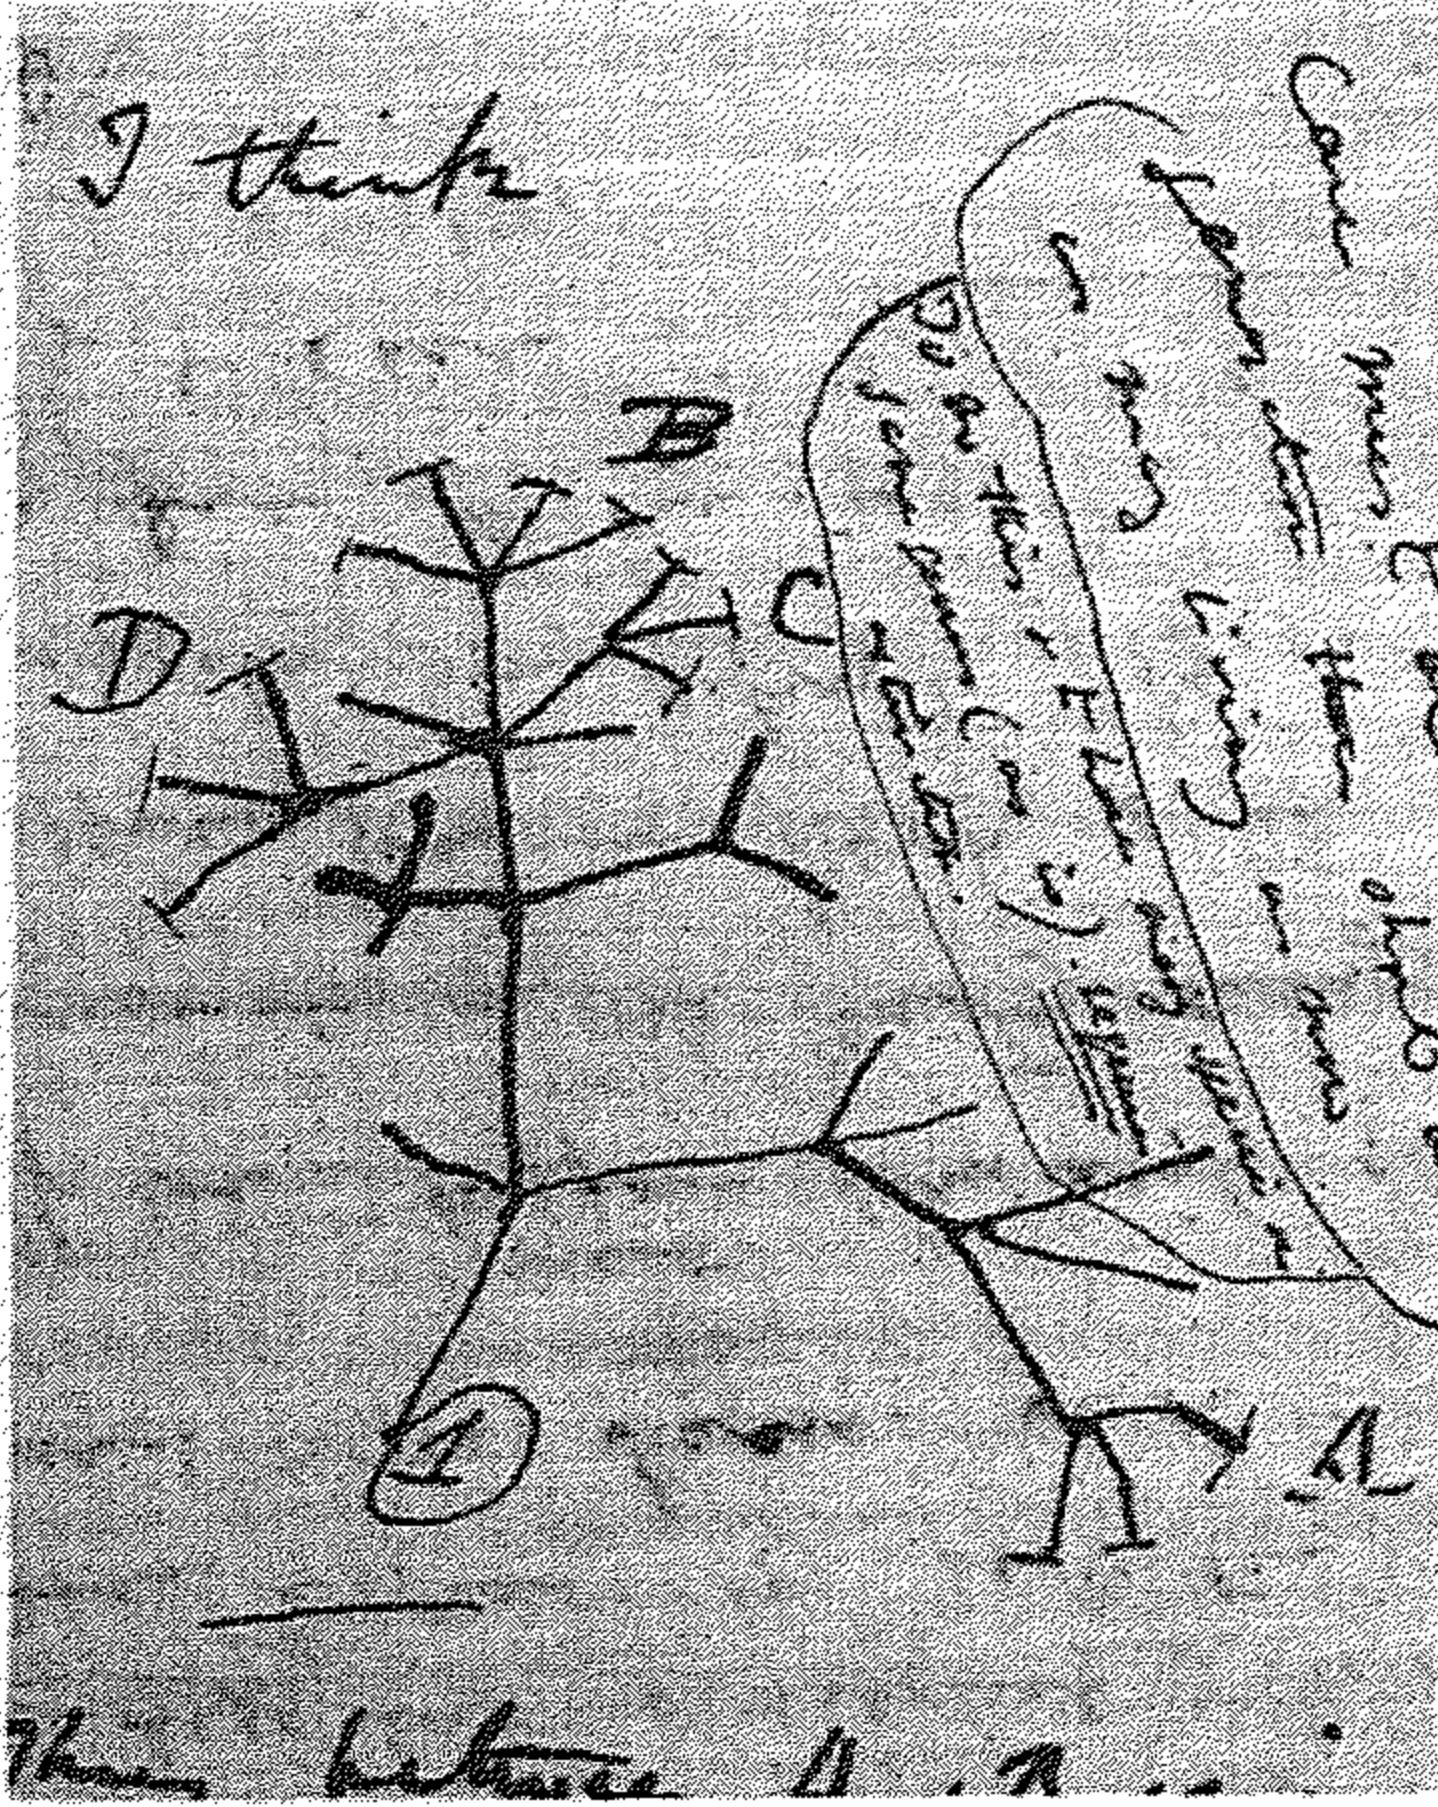 I think
B
D
C
A
1
Case must be
generation then should
as many living as now
To do this & to have many species in
same genus (as is). requires
extinction.
Thus between A